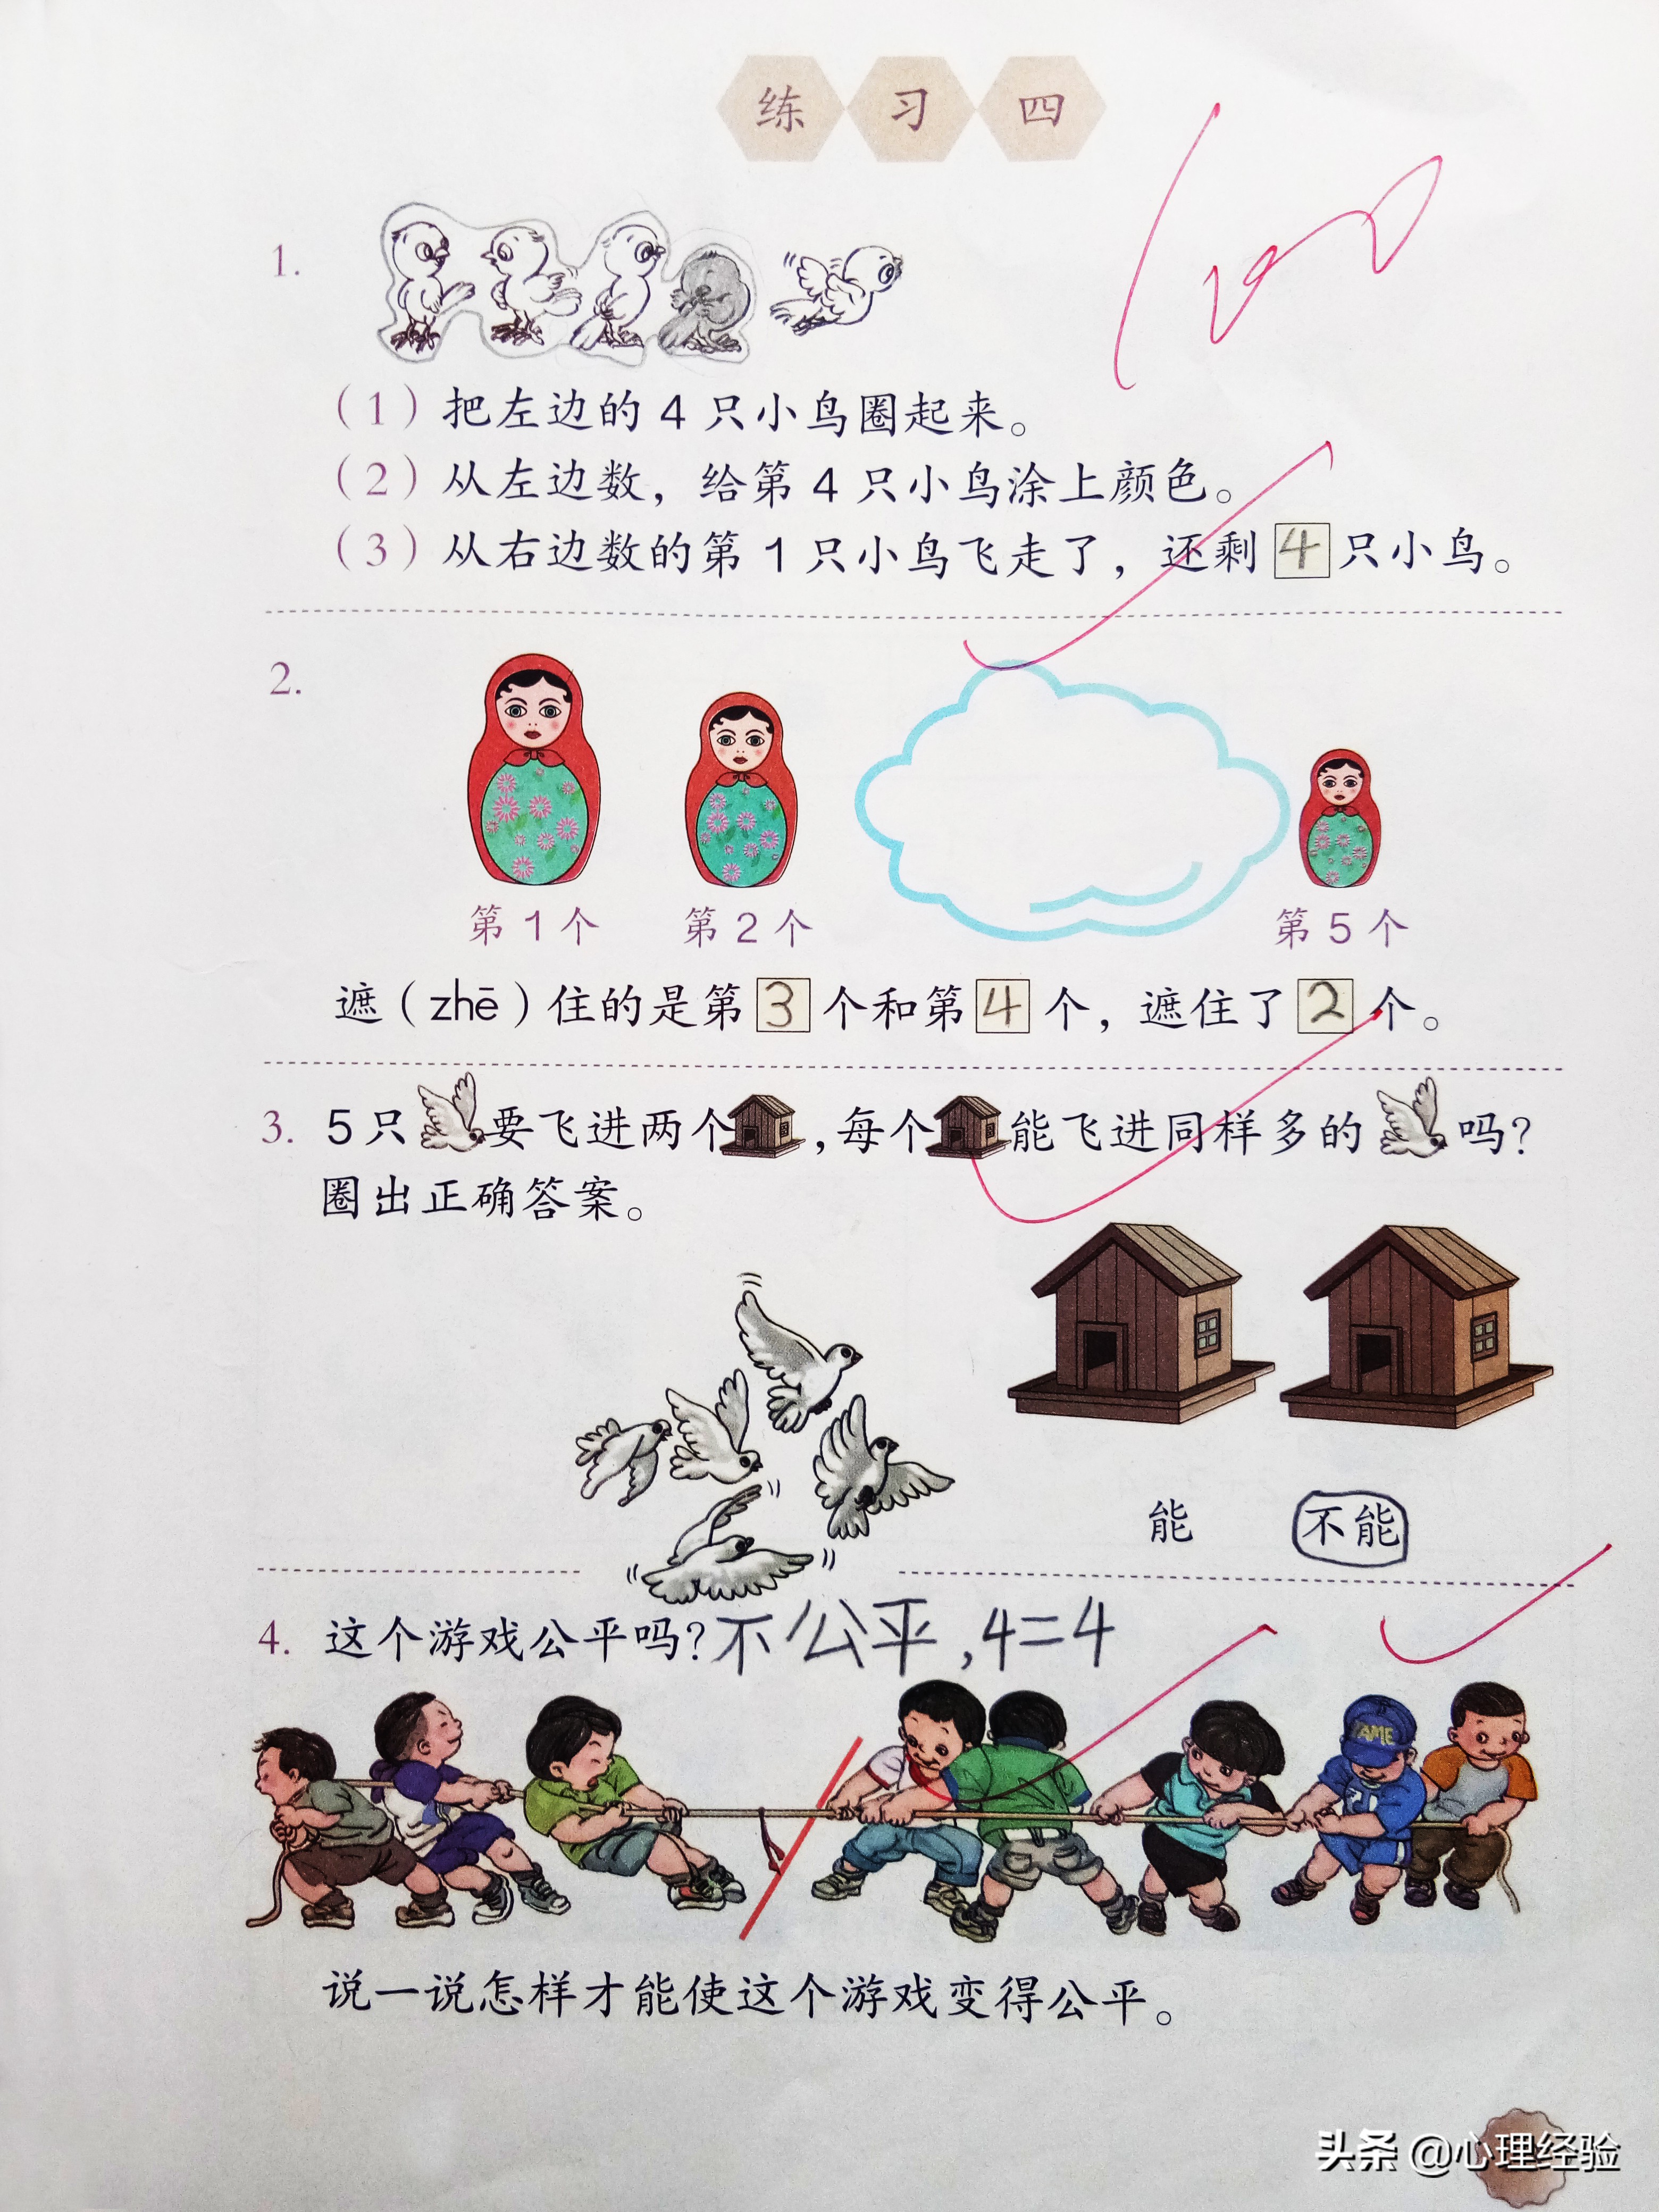 练习四
1.
(1)把左边的4只小鸟圈起来。
(2)从左边数,给第4只小鸟涂上颜色。
(3)从右边数的第1只小鸟飞走了,还剩4只小鸟。
2.
第1个 第2个 第5个
遮(zhē)住的是第3个和第4个,遮住了2个。
3. 5只要飞进两个,每个能飞进同样多的吗?
圈出正确答案。
能 不能
4. 这个游戏公平吗?不公平,4=4
说一说怎样才能使这个游戏变得公平。
头条 @心理经验